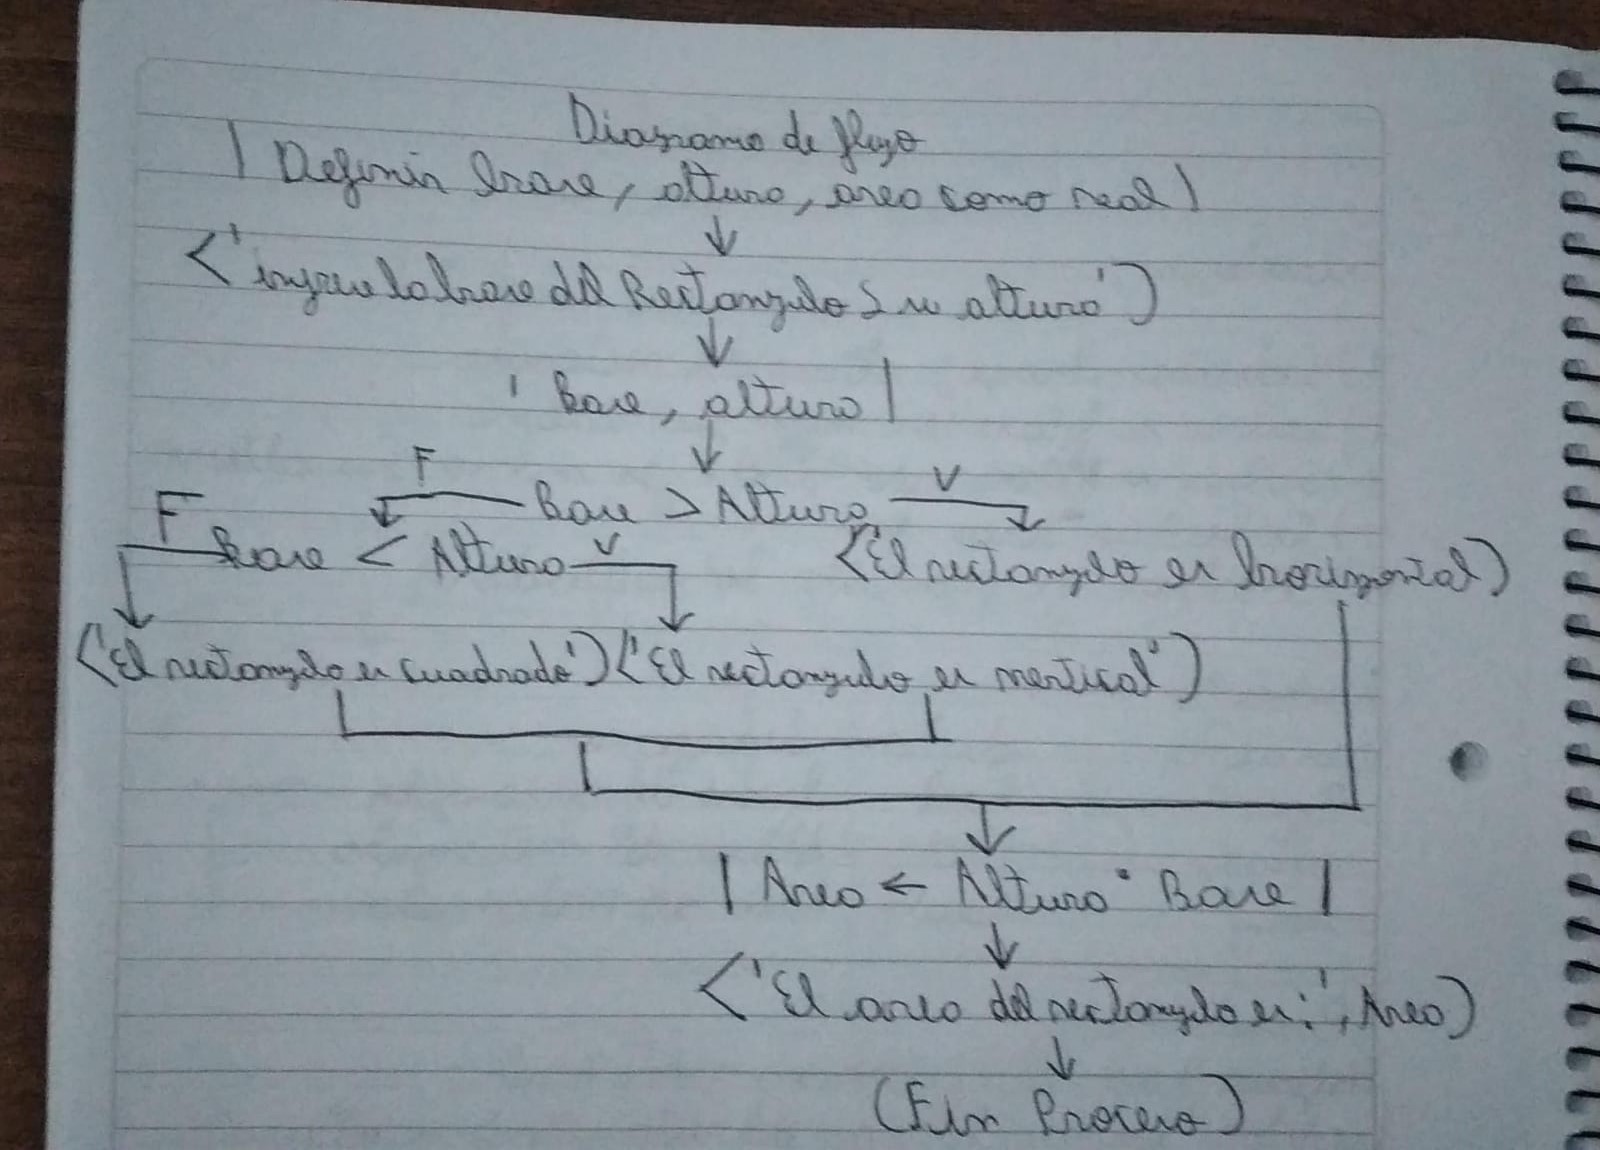 Diagrama de flujo
| Definir base, altura, area como real |
<'ingrese la base del Rectangulo y su altura')
' Base, altura |
F Base > Altura V
F Base < Altura V <'El rectangulo es horizontal)
('El rectangulo es cuadrado') ('El rectangulo es vertical')
| Area ← Altura * Base |
<'El area del rectangulo es:', Area)
(Fin Proceso)